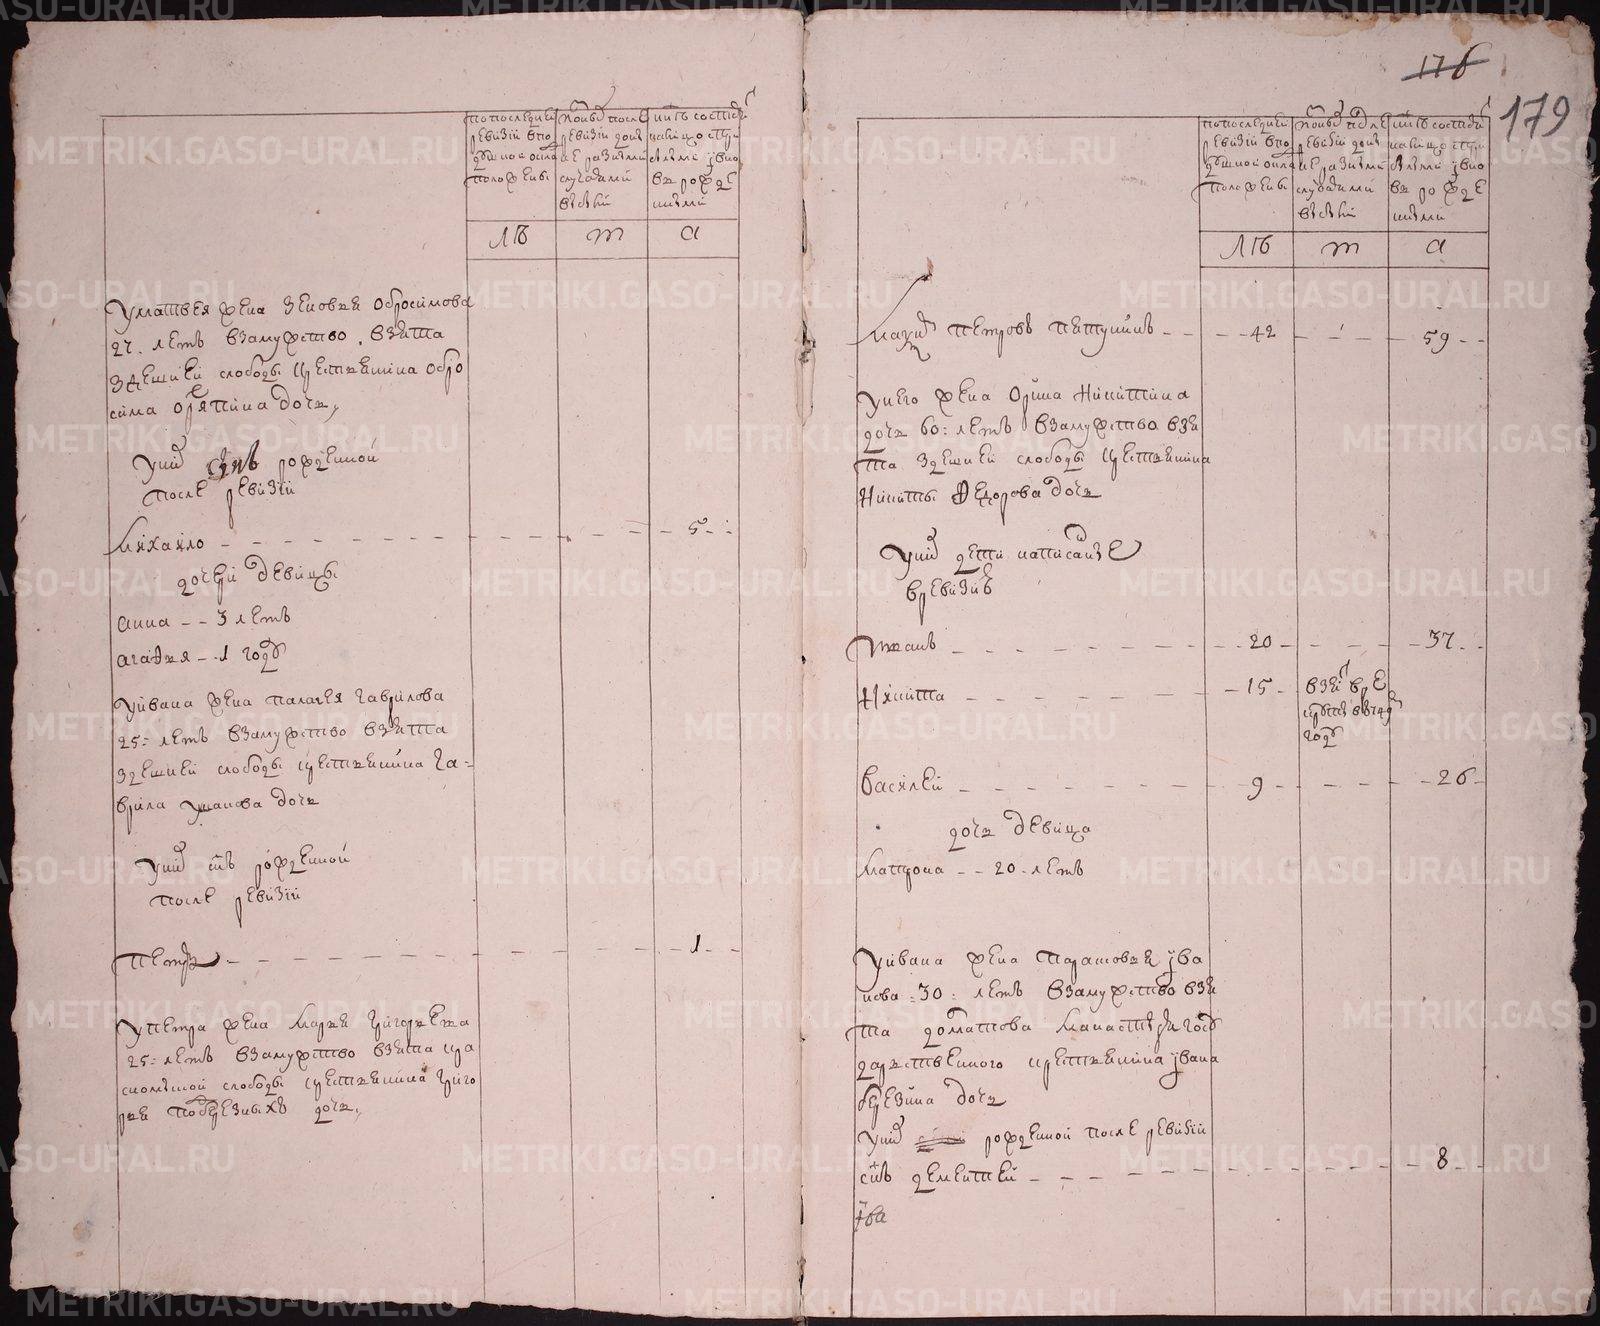 по последней
ревизии в по
душной окла
положены
из оных после
ревизии до ны
не разными
случаями
выбыли
ныне состои
налицо с пр
ылыми и вно
вь рожде
нными
лѣ
т
а
У Матвея жена Зеновья Обросимова
27. летъ взамужство взята
здешней слободы крестьянина Обро
сима дочь
у них сынъ рожденной
после ревизии
Михайло 5
дочери девицы
Анна 3 летъ
Агафья 1 году
У Ивана жена Палагея Гаврилова
25: летъ взамужство взята
здешней слободы крестьянина Га-
врила Ушакова дочь
у них снъ рожденной
после ревизии
Петръ 1
У Петра жена Марья Григорьева
25: летъ взамужство взята кра
снопольской слободы крестьянина Григо
рья дочь
176
179
по последней
ревизии в по
душной окла
положены
из оных после
ревизии до ны
не разными
случаями
выбыли
ныне состои
налицо с при
былыми и вно
вь рожде
нными
лѣ
т
а
Петровъ Петунинъ 42 59
У него жена Орина Никитина
дочь 60: летъ взамужство взя
та здешней слободы крестьянина
Никиты Федорова дочь
у них дети написанные
в ревизии
Иванъ 20 37
Никита 15 взят в ре
круты в 1749
году
Василей 9 26
дочь девица
Матрона 20 летъ
У Ивана жена Парасковья Ива
нова 30: летъ взамужство взя
та Долматова манастыря госу
дарственного крестьянина Ивана
Березина дочь
у них рожденной после ревизии
снъ Дементей 8
Ива